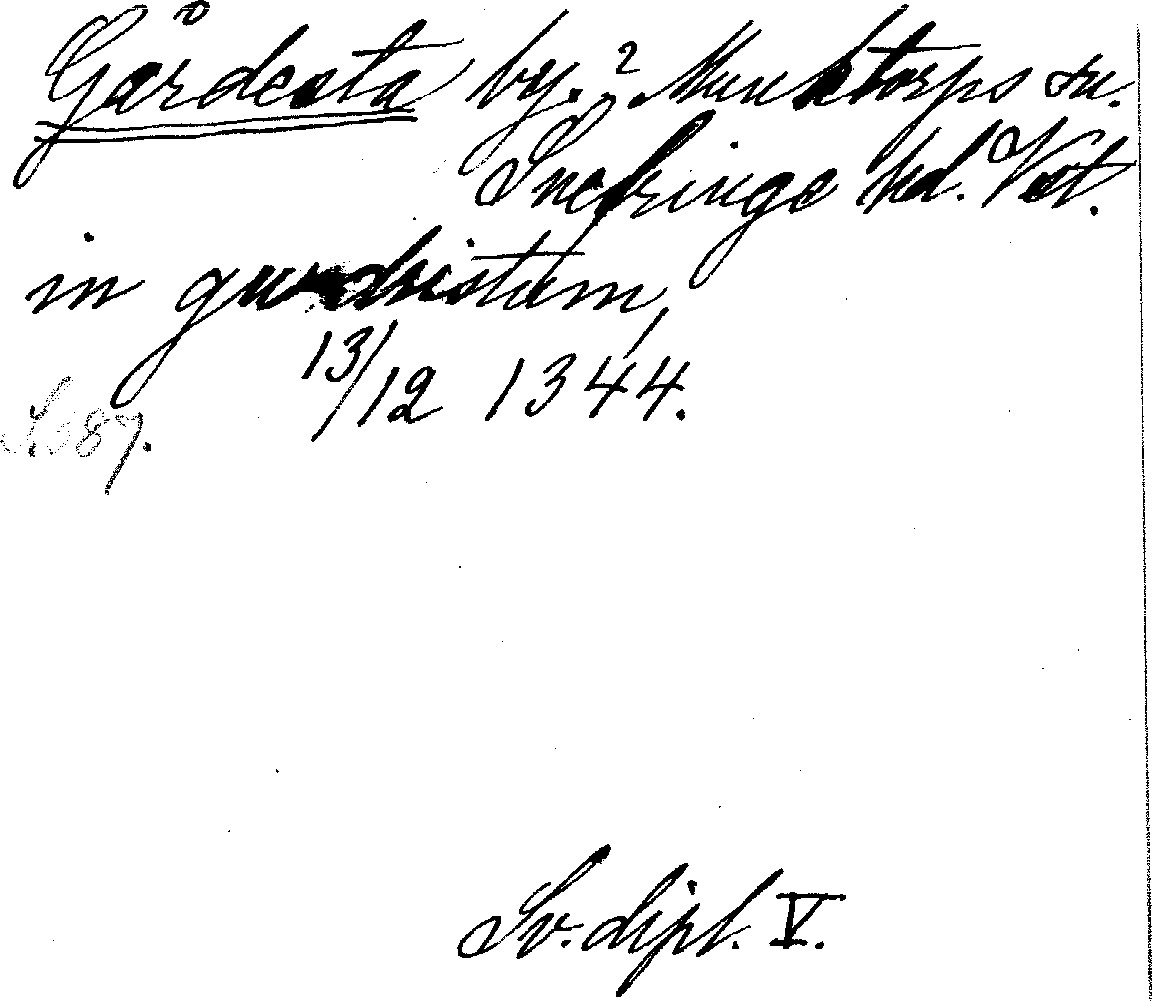 Gårdesta by.? Munktorps sn.
Snefringe hd. Vst.
in gurdhistum,
13/12 1344.
S. 387.
Sv. dipl. V.